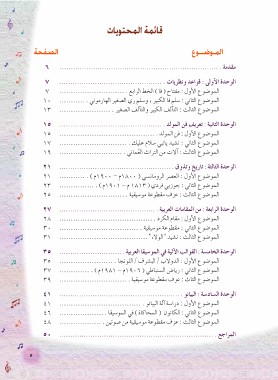 قائمة المحتويات
الموضوع الصفحة
مقدمة ٦
الوحدة الأولى : قواعد ونظريات ٧
الموضوع الأول : مفتاح ( فا ) الخط الرابع ٧
الموضوع الثاني : سلم فا الكبير ، وسلم ري الصغير الهارموني ١٠
الموضوع الثالث : التآلف الكبير والتآلف الصغير ١٣
الوحدة الثانية : تعريف فن المولد ١٥
الموضوع الأول : فن المولد ١٥
الموضوع الثاني : نشيد يا نبي سلام عليك ١٧
الموضوع الثالث : آلات من التراث العُماني ١٩
الوحدة الثالثة : تاريخ وتذوق ٢١
الموضوع الأول : العصر الرومانسي ( ١٨٠٠م - ١٩٠٠م ) ٢١
الموضوع الثاني : جوزيبي فردي ( ١٨١٣م - ١٩٠١م ) ٢٣
الموضوع الثالث : عزف مقطوعة موسيقية ٢٥
الوحدة الرابعة : من المقامات العربية ٢٧
الموضوع الأول : مقام الكرد ٢٨
الموضوع الثاني : مقطوعة موسيقية ٣٠
الموضوع الثالث : نشيد " الولاء " ٣١
الوحدة الخامسة : القوالب الآلية في الموسيقا العربية ٣٥
الموضوع الأول : الدولاب / البشرف / اللونجا ٣٥
الموضوع الثاني : رياض السنباطي ( ١٩٠٦م - ١٩٨١م ) ٣٧
الموضوع الثالث : عزف مقطوعة موسيقية ٣٩
الوحدة السادسة : البيانو ٤١
الموضوع الأول : دراسة آلة البيانو ٤١
الموضوع الثاني : الكانون ( المحاكاة ) في الموسيقا ٤٦
الموضوع الثالث : عزف مقطوعة موسيقية من صوتين ٤٨
المراجع ٥٠
٥